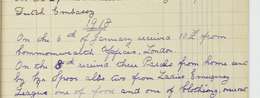 British Embassy
1918
On the 6th of January received 10£ from
Commonwealth Officer, London
On the 8th received three Parcels from home and
by Mr Spoor also two from Ladies Emergency
League one of food and one of clothing,